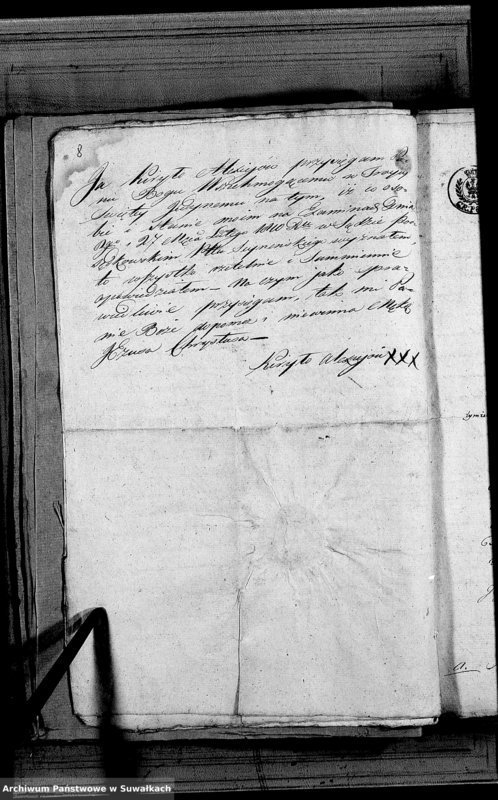 8
Ja Kiryło Alexiejów przysięgam Pa-
nu Bogu Wszechmogącemu w Troycy
Swiętey Jedynemu na tym, iż co o so-
bie i Stanie moim na Examinach Dnia
27 Lutego 1810 Rku w Sądzie po-
wyznałem,
to wszystko rzetelnie i Summiennie
opowiedziałem — Na czym jako spra-
wiedliwie przysięgam, tak mi Pa-
nie Boże dopomoż i niewinna Męko
Jezusa Chrystusa —
Kiryło Alexiejów XXX
a.
Archiwum Państwowe w Suwałkach